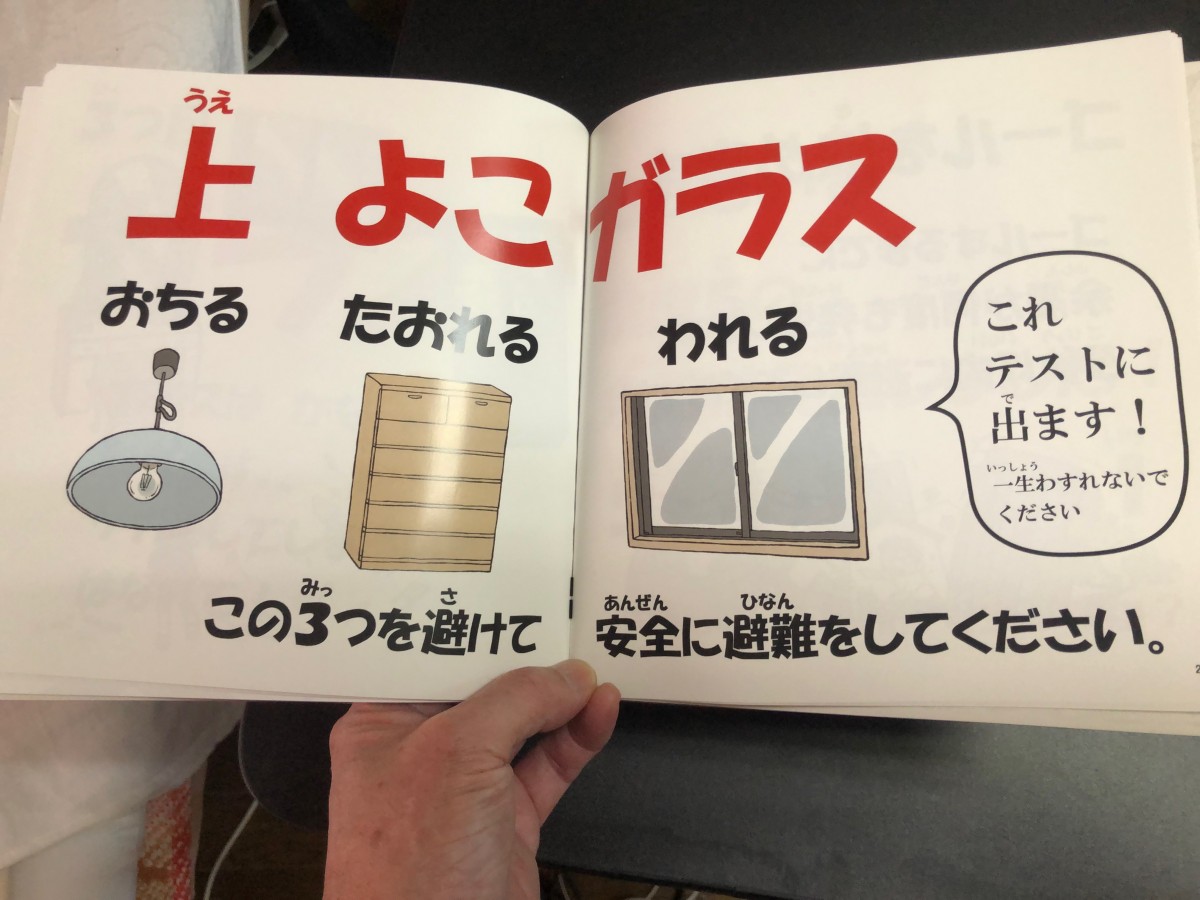 うえ
上 よこ ガラス
おちる たおれる われる
この3つを避けて 安全に避難をしてください。
みっ さ あんぜん ひなん
これ
テストに
で
出ます！
いっしょう
一生わすれないで
ください